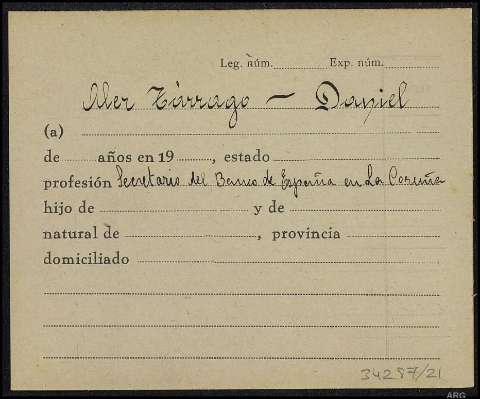 Leg. núm. Exp. núm.
Aler Tárrago — Daniel
(a)
de años en 19 , estado
profesión Secretario del Banco de España en La Coruña
hijo de y de
natural de , provincia
domiciliado
34287/21
ARG